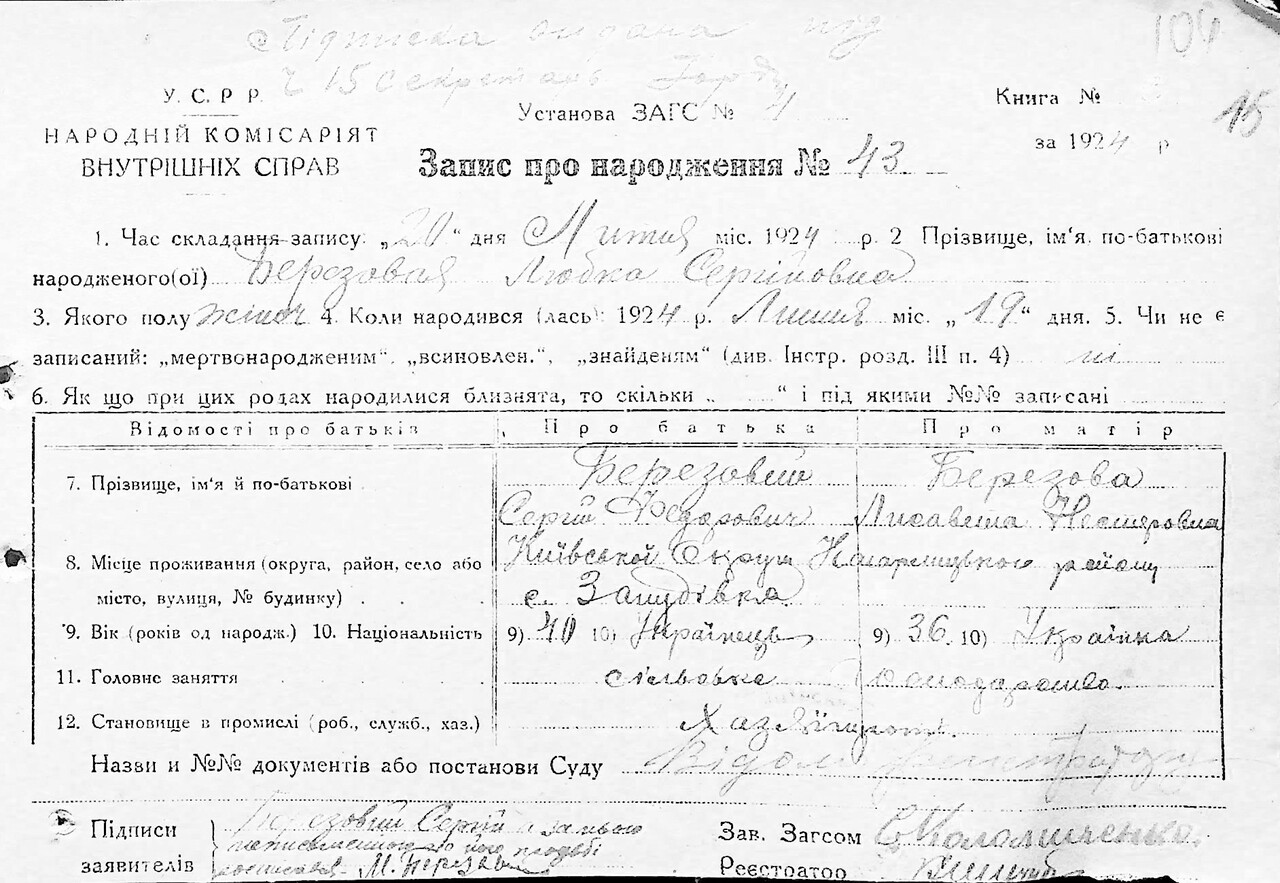 Підписка видана під
ч 15 секретарь
106
У. С. Р. Р.
Установа ЗАГС № 4
Книга №
15
НАРОДНІЙ КОМІСАРІЯТ
ВНУТРІШНІХ СПРАВ
за 1924 р
Запис про народження № 43
1. Час складання запису: „20“ дня Липня міс. 1924 р. 2 Прізвище, ім‘я, по-батькові
народженого(ої) Березовая Любка Сергійовна
3. Якого полу жіноч 4. Коли народився (лась): 1924 р. Липня міс. „19“ дня. 5. Чи не є
записаний: „мертвонародженим“, „всиновлен.“, „знайденям“ (див. Інстр. розд. III п. 4) ні
6. Як що при цих родах народилися близнята, то скільки „ “ і під якими №№ записані
Відомості про батьків Про батька Про матір
7. Прізвище, ім‘я й по-батькові Березовий Березова
Сергій Федорович Лисавета Нестеровна
8. Місце проживання (округа, район, село або Київської Округи Кагарлицького району
місто, вулиця, № будинку) с.
9. Вік (років од народж.) 10. Національність 9) 40 10) Українець 9) 36 10) Українка
11. Головне заняття
12. Становище в промислі (роб., служб., хаз.)
Назви и №№ документів або постанови Суду
Підписи Березовий Сергій
заявителів неписьменного по його прозьбі
росписавсь М. Березов
Зав. Загсом Коломійченко
Реєстратор